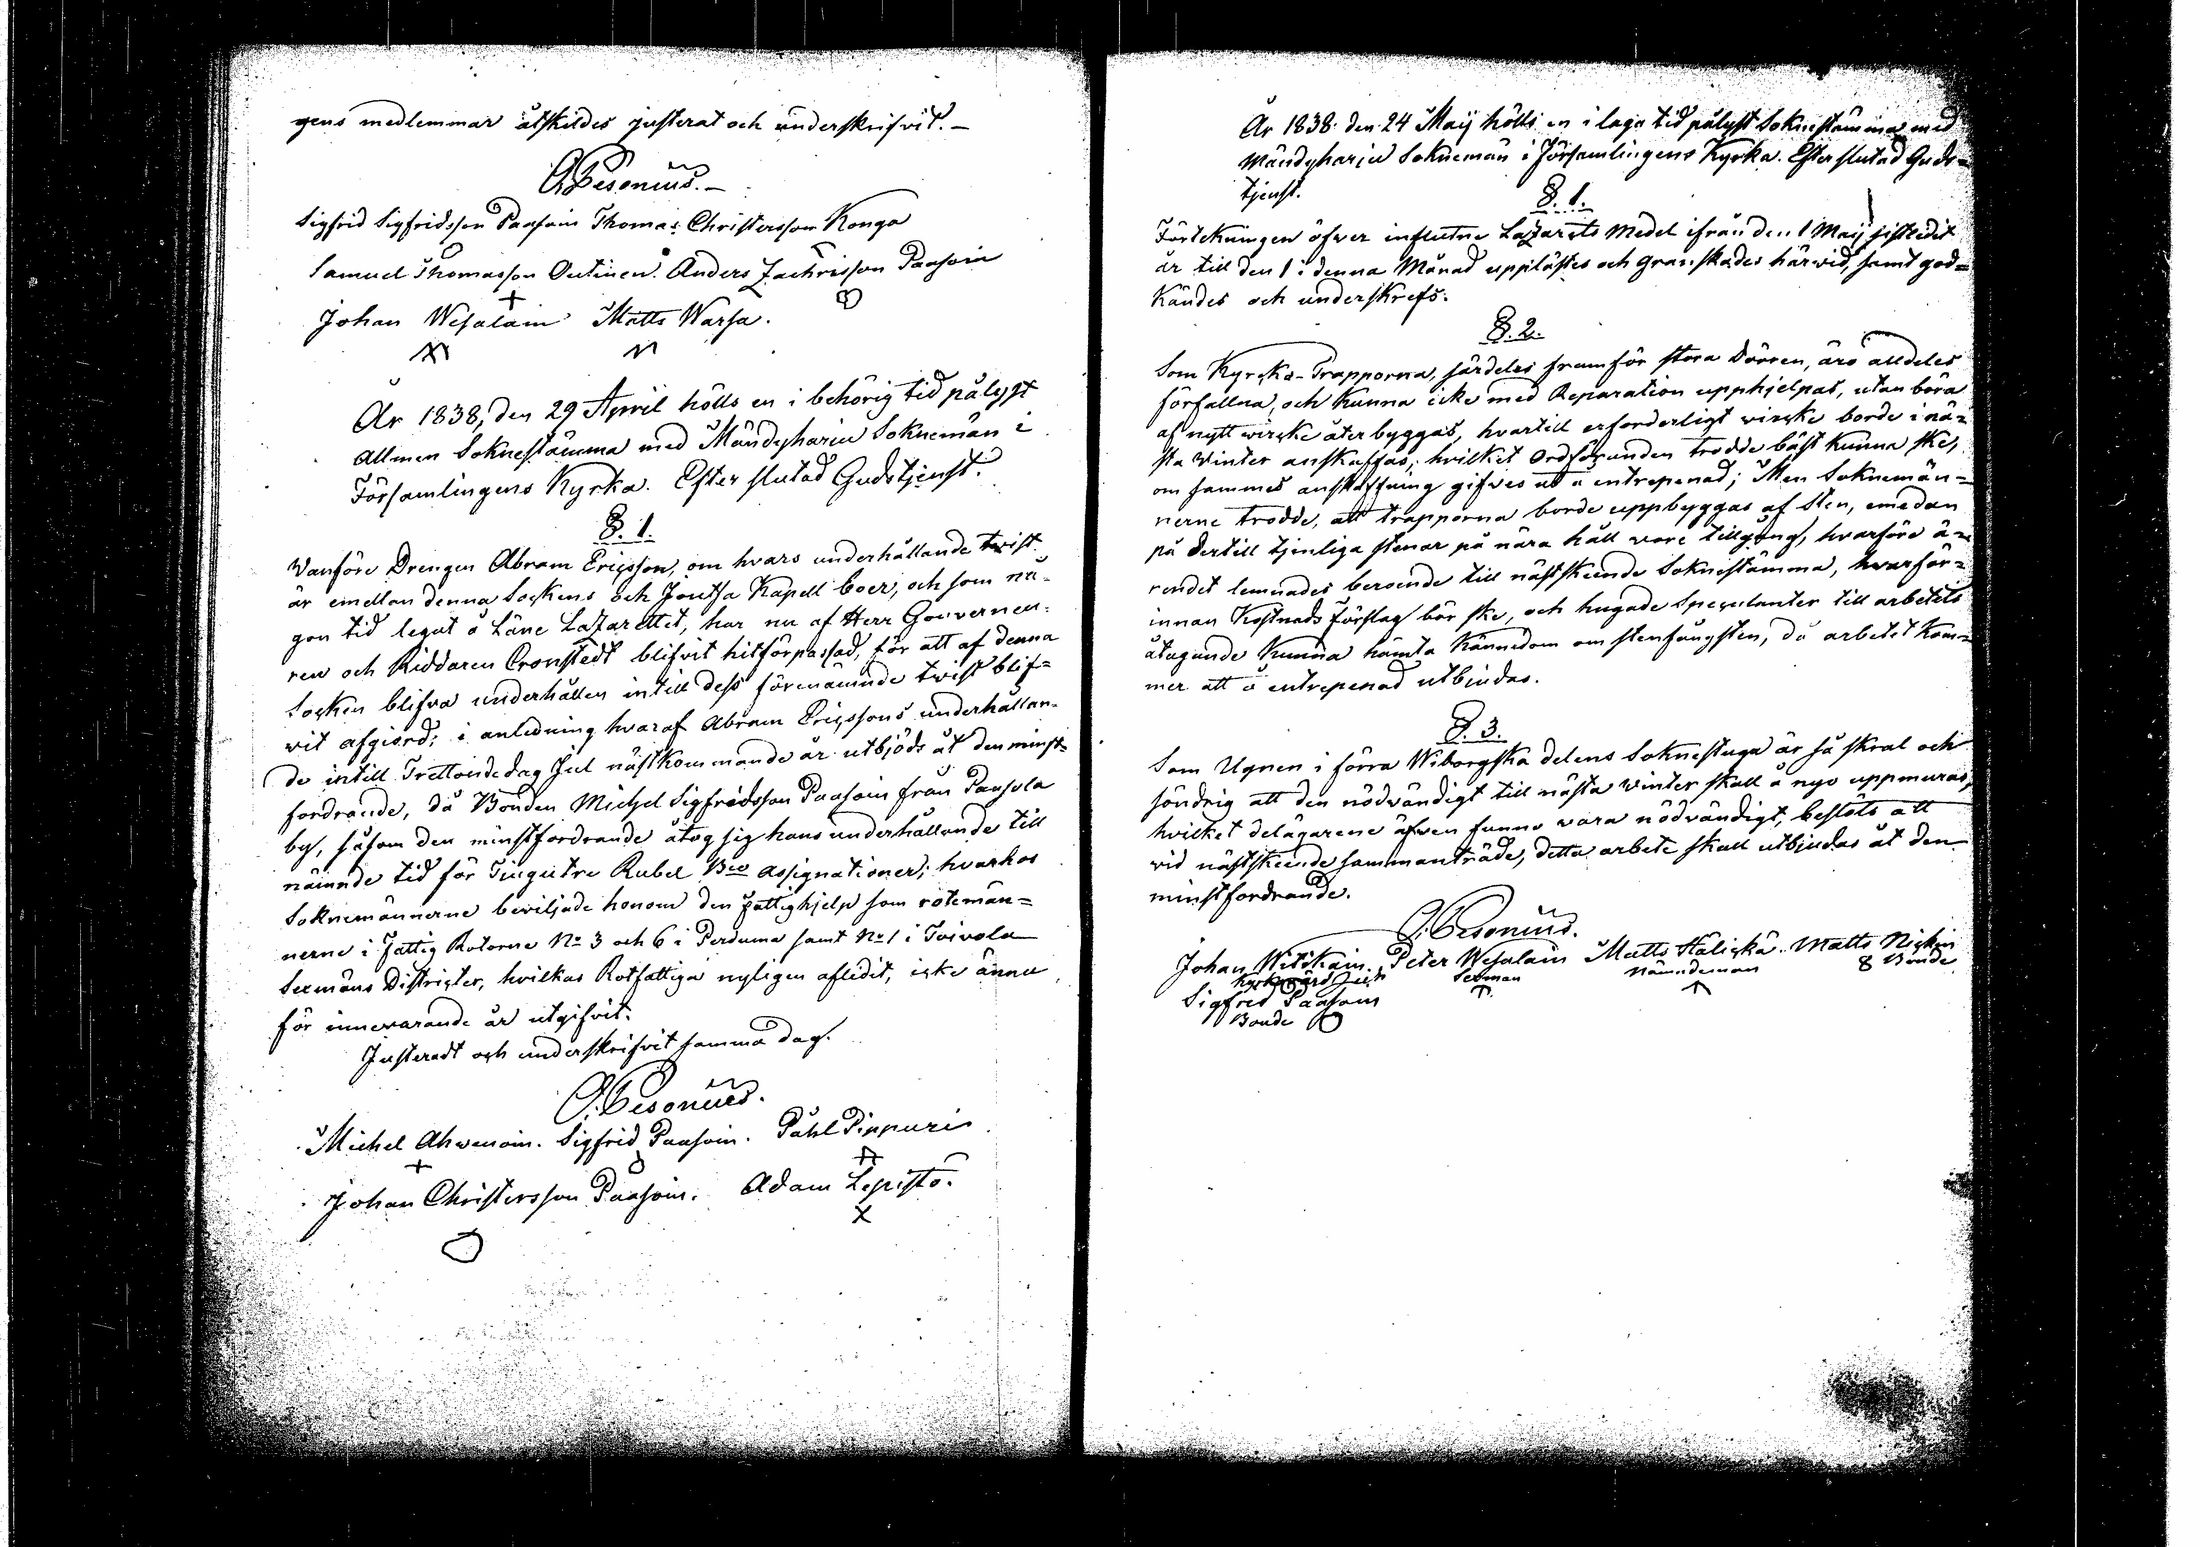 gens medlemmar åtskildes justerat och underskrifvit.–
Pesonius.–
Sigfrid Sigfridsson Paasoin Thomas Christersson Konga
Samuel Thomasson Outinen. Anders Zachrisson Paasoin
Johan Wesalain Matts Warsa.
År 1838, den 29 April hölls en i behörig tid pålyst
allmen Soknestämma med Mändyharju Soknemän i
Församlingens Kyrka. Efter slutad Gudstjenst.
§. 1.
Vanföre Drengen Abram Ericsson, om hvars underhållande twist
är emellan denna Sockens och Joutsa Kapell boer, och som nå-
gon tid legat å Läne Lazarettet, har nu af Herr Gouverneu-
ren och Riddaren Cronstedt blifvit hitförpassad, för att af denna
Socken blifva underhållen intill dess förenämnde twist blif=
vit afgiord; i anledning hvaraf Abram Ericssons underhållan-
de intill Trettondedag Jul nästkommande år utbjöds åt den minst-
fordrande, då Bonden Michel Sigfredsson Paasoin från Paasola
by, såsom den minstfordrande åtog sig hans underhållande till
nämnde tid för Tiugutre Rubel Bco assignationer; hvarhos
Soknemännerne beviljade honom den fattighjelp som rotemän=
nerne i Fattig Rotorne No 3 och 6 i Perduma samt No 1 i Toivola
Sexmäns Districter, hvilkas Rotfattiga nyligen aflidit, icke ännu
för innevarande år utgifvit.
Justeradt och underskrifvit samma dag.
Pesonius.
Michel Ahwenain. Sigfrid Paasoin. Påhl Pippuri
Johan Christersson Paasoin. Adam Lepistö.
År 1838 den 24 Maij hölls en i laga tid pålyst Soknestämma med
Mändyharju Soknemän i Församlingens Kyrka. Efter slutad Guds-
tjenst.
§. 1.
Förtekningen öfwer influtne Lazaretts Medel ifrån den 1 Maij sistledit
år till den 1 i denna Månad upplästes och granskades härwid, samt god=
kändes och underskrefs.
§. 2.
Som Kyrcko-Trapporna, särdeles framför stora Dörren, äro alldeles
förfallna, och kunna icke med Reparation upphjelpas, utan böra
af nytt wircke återbyggas, hvartill erforderligt wircke borde i nä-
sta Winter anskaffas, hvilket Ordföranden trodde bäst kunna ske,
om sammes anskaffning gifves ut å entrepenad; Men Soknemän=
nerne trodde, att trapporna borde uppbyggas af Sten, emedan
på dertill tjenliga stenar på nära håll wore tillgång, hvarföre ä-
rendet lemnades beroende till nästskeende Soknestämma, hvarför-
innan Kostnads Förslag bör ske, och hugade Speculanter till arbetets
åtagande kunna hämta Kännedom om stenfångsten, då arbetet kom-
mer att å entrepenad utbjudas.
§. 3.
Som Ugnen i förra Wiborgska delens Soknestuga är så skral och
söndrig att den nödvändigt till nästa winter skall å nyo uppmuras,
hvilket delägarene äfwen funno vara nödvändigt, beslöts att
vid nästskeende sammanträde, detta arbete skall utbjudas åt den
minstfordrande.
Pesonius.
Johan Witikain. Peter Wesalain Matts Hälickä. Matts Nickin
Sexman Nämndeman Bonde
Sigfred Paasoin
Bonde